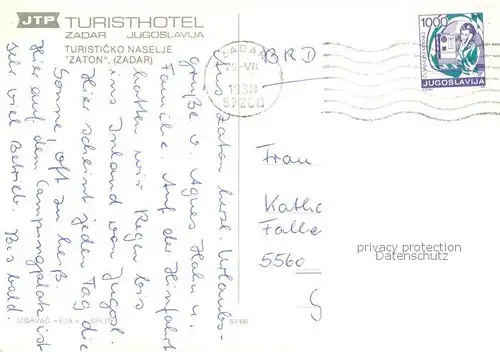 JTP TURISTHOTEL
ZADAR JUGOSLAVIJA
TURISTIČKO NASELJE
"ZATON", (ZADAR)
Aus Zaton herzl. Urlaubs-
grüße v. Agnes Hahn u.
Familie. Auf der Hinfahrt
hatten wir Regen bis
ins Inland von Jugosl.
Hier scheint jeden Tag die
Sonne, oft zu heiß.
Hier auf dem Campingplatz ist
sehr viel Betrieb. Bis bald
ZADAR
1988
57200
BRD
1000
JUGOSLAVIJA
Frau
Kathe
Falle
5560
privacy protection
Datenschutz
57/66